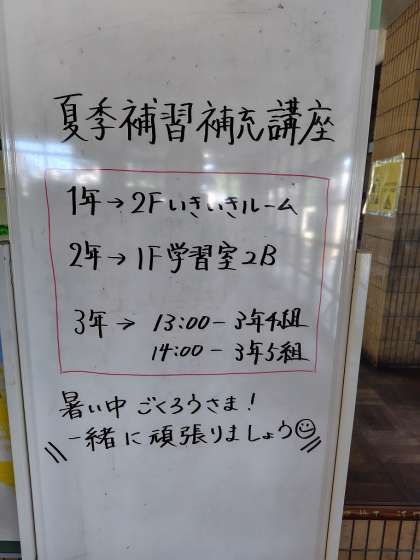 夏季補習補充講座
1年→2Fいきいきルーム
2年→1F学習室2B
3年→ 13:00-3年4組
14:00-3年5組
暑い中 ごくろうさま!
一緒に頑張りましょう